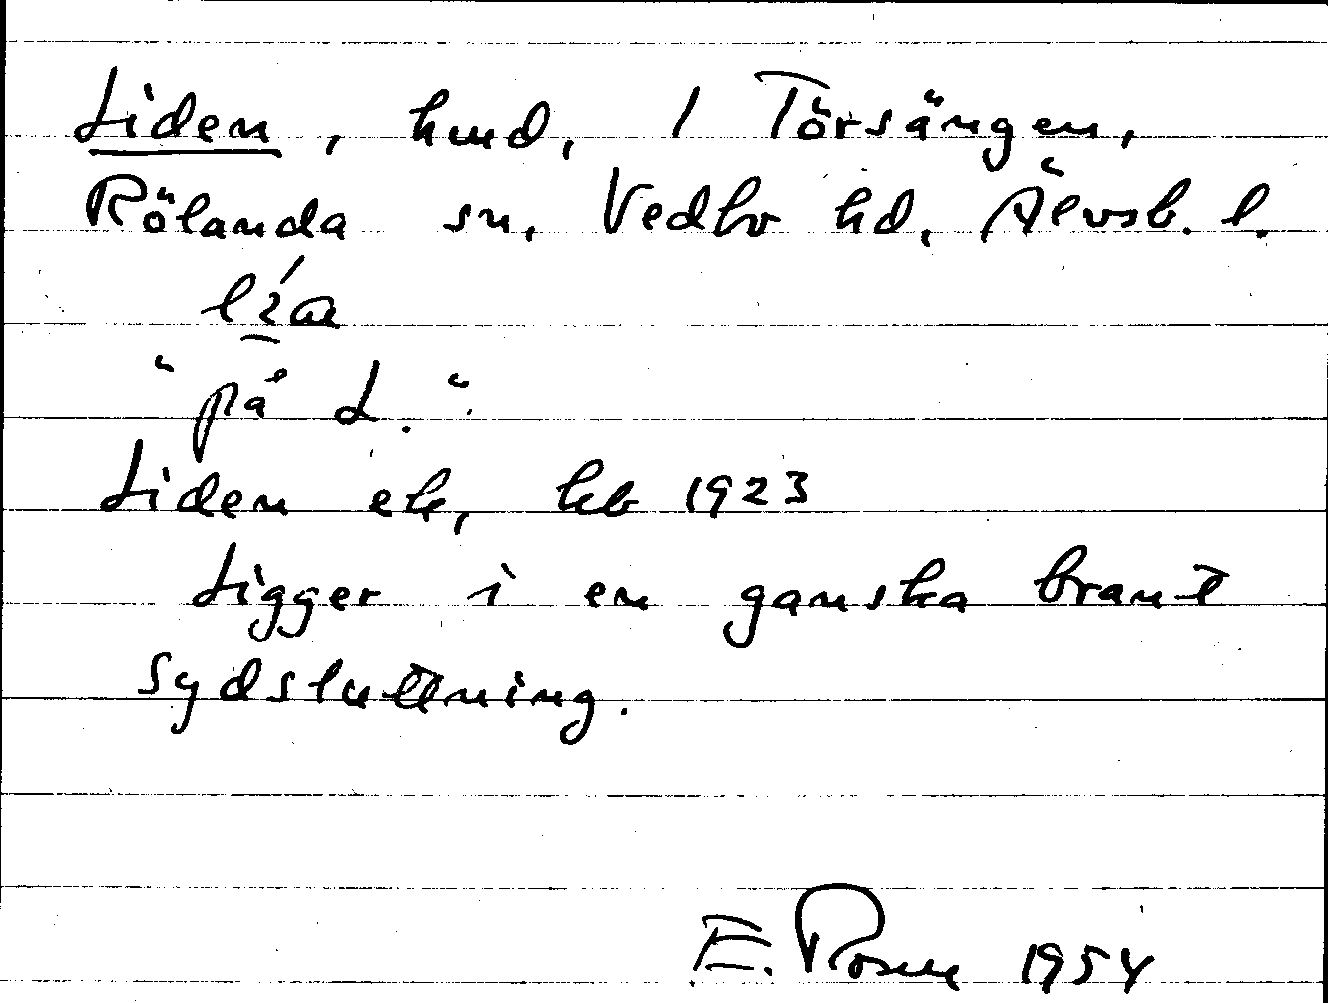 Liden, hmd, 1 Törsängen,
Rölanda sn, Vedbo hd, Älvsb. l.
"på L."
Liden ek, kb 1923
Ligger i en ganska brant
sydsluttning.
E. Rosen 1954